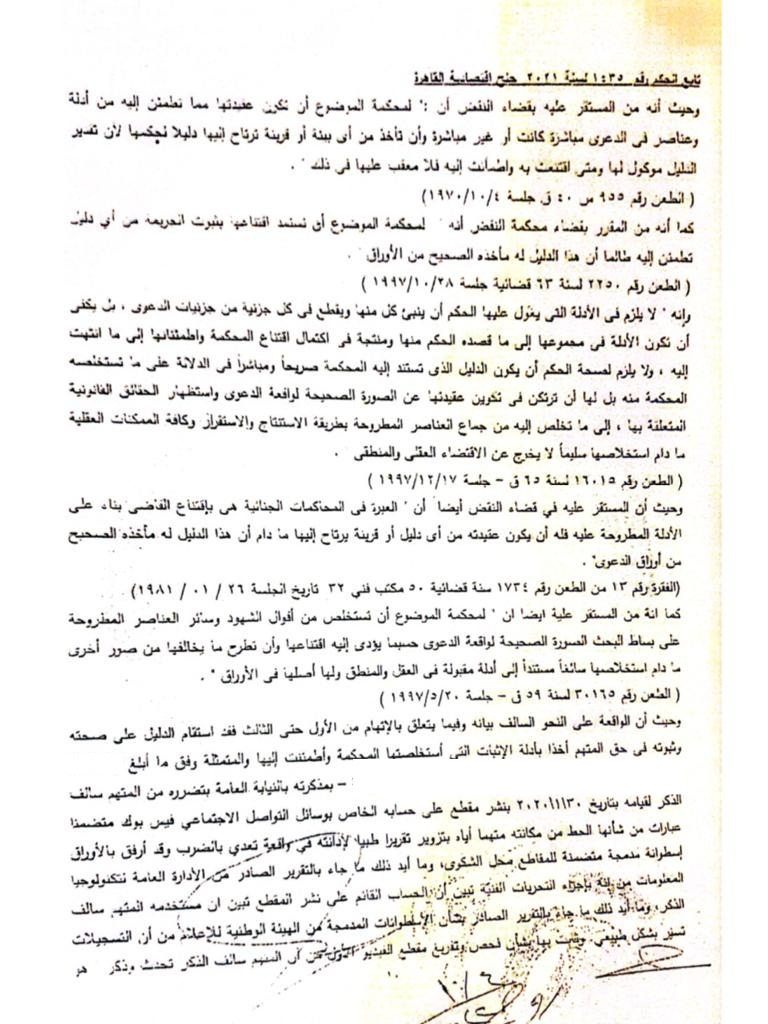 تابع الحكم رقم ١٤٣٥ لسنة ٢٠٢١ جنح اقتصادية القاهرة
وحيث أنه من المستقر عليه بقضاء النقض أن : " لمحكمة الموضوع أن تكون عقيدتها مما تطمئن إليه من أدلة
وعناصر فى الدعوى مباشرة كانت أو غير مباشرة وأن تأخذ من أى بينة أو قرينة ترتاح إليها دليلا لحكمها لأن تقدير
الدليل موكول لها ومتى اقتنعت به واطمأنت إليه فلا معقب عليها فى ذلك " .
( الطعن رقم ٩٥٥ س ٤٠ ق جلسة ١٩٧٠/١٠/٤)
كما أنه من المقرر بقضاء محكمة النقض أنه " لمحكمة الموضوع أن تستمد اقتناعها بثبوت الجريمة من أي دليل
تطمئن إليه طالما أن هذا الدليل له مأخذه الصحيح من الأوراق " .
( الطعن رقم ٢٢٥٠ لسنة ٦٣ قضائية جلسة ١٩٩٧/١٠/٢٨ )
وإنه " لا يلزم فى الأدلة التى يعول عليها الحكم أن ينبئ كل منها ويقطع فى كل جزئية من جزئيات الدعوى ، بل يكفى
أن تكون الأدلة فى مجموعها إلى ما قصده الحكم منها ومنتجة فى اكتمال اقتناع المحكمة واطمئنانها إلى ما انتهت
إليه ، ولا يلزم لصحة الحكم أن يكون الدليل الذى تستند إليه المحكمة صريحاً ومباشراً فى الدلالة على ما تستخلصه
المحكمة منه بل لها أن ترتكن فى تكوين عقيدتها عن الصورة الصحيحة لواقعة الدعوى واستظهار الحقائق القانونية
المتعلقة بها ، إلى ما تخلص إليه من جماع العناصر المطروحة بطريقة الاستنتاج والاستقراز وكافة الممكنات العقلية
ما دام استخلاصها سليماً لا يخرج عن الاقتضاء العقلى والمنطقى " .
( الطعن رقم ١٦٠١٥ لسنة ٦٥ ق – جلسة ١٩٩٧/١٢/١٧ )
وحيث أن المستقر عليه في قضاء النقض أيضا أن " العبرة فى المحاكمات الجنائية هى بإقتناع القاضى بناء على
الأدلة المطروحة عليه فله أن يكون عقيدته من أى دليل أو قرينة يرتاح إليها ما دام أن هذا الدليل له مأخذه الصحيح
من أوراق الدعوى" .
(الفقرة رقم ١٣ من الطعن رقم ١٧٣٤ سنة قضائية ٥٠ مكتب فني ٣٢ تاريخ الجلسة ٢٦ / ٠١ / ١٩٨١)
كما انة من المستقر علية ايضا ان " لمحكمة الموضوع أن تستخلص من أقوال الشهود وسائر العناصر المطروحة
على بساط البحث الصورة الصحيحة لواقعة الدعوى حسبما يؤدى إليه اقتناعها وأن تطرح ما يخالفها من صور أخرى
ما دام استخلاصها سائغاً مستنداً إلى أدلة مقبولة فى العقل والمنطق ولها أصلها فى الأوراق " .
( الطعن رقم ٣٠١٦٥ لسنة ٥٩ ق – جلسة ١٩٩٧/٥/٢٠ )
وحيث أن الواقعة على النحو السالف بيانه وفيما يتعلق بالإتهام من الأول حتى الثالث فقد استقام الدليل على صحته
وثبوته فى حق المتهم أخذا بأدلة الإثبات التى أستخلصتها المحكمة وأطمئنت إليها والمتمثلة وفق ما أبلغ
– بمذكرته بالنيابة العامة بتضرره من المتهم سالف
الذكر لقيامه بتاريخ ٢٠٢٠/١/٣٠ بنشر مقطع على حسابه الخاص بوسائل التواصل الاجتماعي فيس بوك متضمنا
عبارات من شأنها الحط من مكانته متهما أياه بتزوير تقريرا طبيا لإدانته في واقعة تعدي بالضرب وقد أرفق بالأوراق
إسطوانة مدمجة متضمنة للمقاطع محل الشكوى، وما أيد ذلك ما جاء بالتقرير الصادر من الأدارة العامة نتكنولوجيا
المعلومات من إنه بإجراء التحريات الفنية تبين أن الحساب القائم على نشر المقطع تبين ان مستخدمه المتهم سالف
الذكر، وما أيد ذلك ما جاء بالتقرير الصادر بشأن الأسطوانات المدمجة من الهيئة الوطنية للإعلام من أن التسجيلات
تسير بشكل طبيعي بها بشأن فحص وتفريغ مقطع الفيديو الأول من أن المتهم سالف الذكر تحدث وذكر " هو